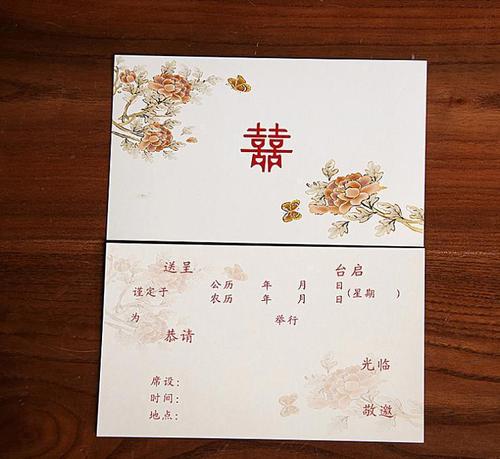 囍
送呈 台启
谨定于 公历 年 月 日
农历 年 月 日 (星期 )
为 举行
恭请
光临
席设:
时间:
地点: 敬邀